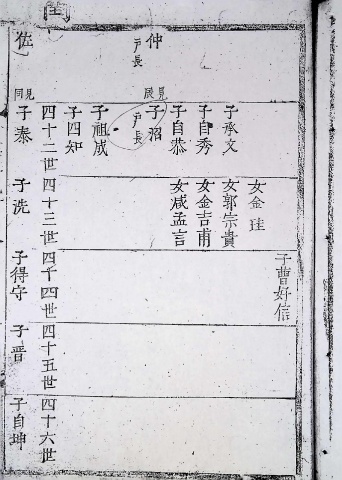 仲
戶長
子承文
子自秀
子自恭
子沼
戶長
子祖成
子四知
四十二世
子泰
女金珪
女郭宗貴
女金吉甫
女咸孟言
四十三世
子洗
子曹好信
四千四世
子得守
四十五世
子晋
四十六世
子自坤